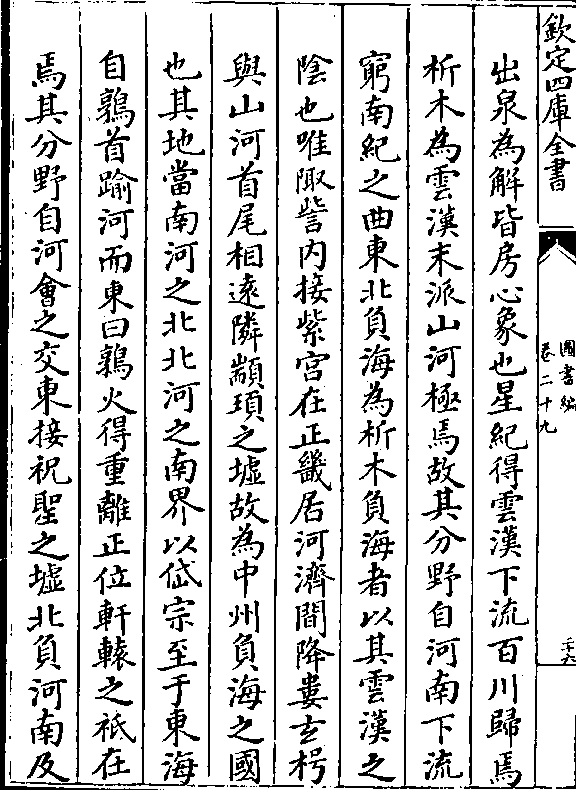 欽定四庫全書
圖書編
卷二十九
二十六
出泉為解皆房心象也星紀得雲漢下流百川歸焉
析木為雲漢末派山河極焉故其分野自河南下流
窮南紀之曲東北負海為析木負海者以其雲漢之
隂也唯陬訾内接紫宫在正畿居河濟間降婁玄枵
與山河首尾相逺隣顓頊之墟故為中州負海之國
也其地當南河之北北河之南界以岱宗至于東海
自鶉首踰河而東曰鶉火得重離正位軒轅之祇在
焉其分野自河會之交東接祝聖之墟北負河南及